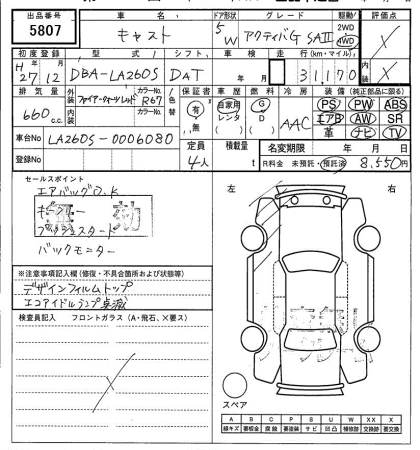 出品番号 車名 ドア形状 グレード 駆動 評価点
5807 キャスト 5 W アクティバG SAⅡ 2WD 4WD X
初度登録 型式 シフト 車検 走行(km・マイル) 内装
H 27 12 DBA-LA260S DAT 年 月 31,170 X
排気量 外装 カラーNo. 色替 保証書 車歴 燃料 冷房 装備(純正部品に限る)
660 c.c. ファイアークォーツレッド R67 有・無 自家用 レンタ G D AAC PS PW ABS
内装 カラーNo. エアB AW SR
革 ナビ TV
車台No. LA260S-0006080 定員 積載量 名変期限 年 月 日
登録No. 4人 t R料金 未預託・預託済 8,550円
セールスポイント 左 右
エアバッグ
キーフリー
プッシュスタート
バックモニター
※注意事項記入欄(修復・不具合箇所および状態等)
デザインフィルムトップ
エコアイドルランプ点滅
検査員記入 フロントガラス(A・飛石、X要ス)
スペア
A B C P S U W X XX
線キズ 要板金 腐蝕 要塗装 サビ 凹凸 補修跡 要交換